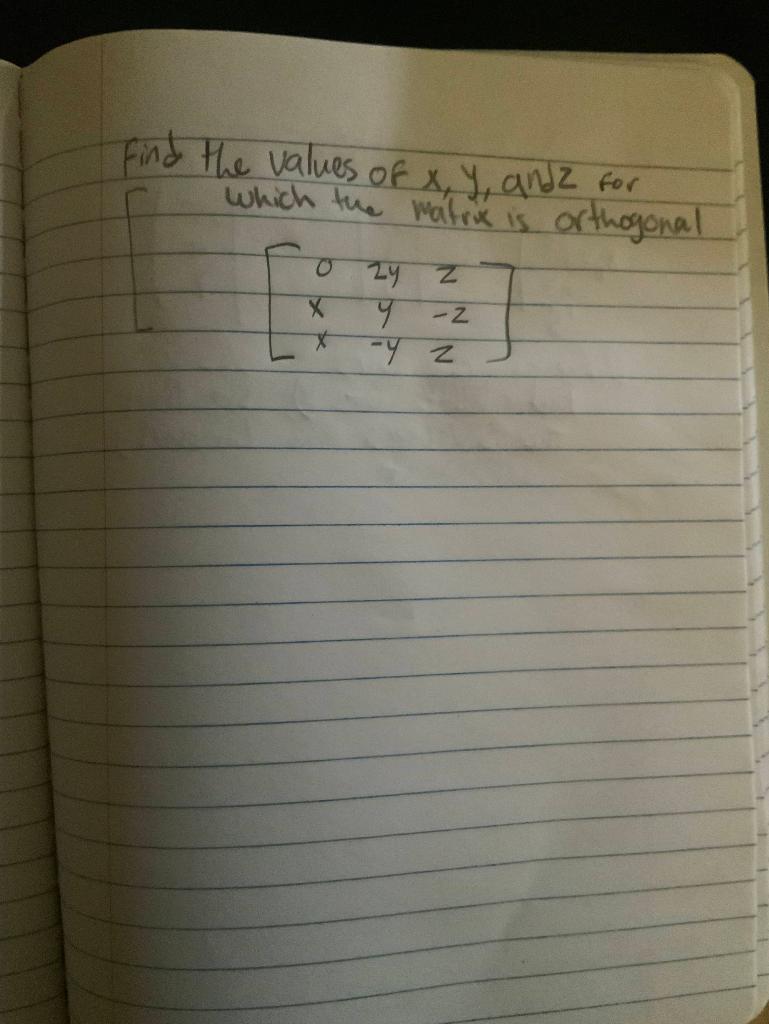 Find the values of x, y, and z for
which the matrix is orthogonal
0 2y z
x y -z
x -y z